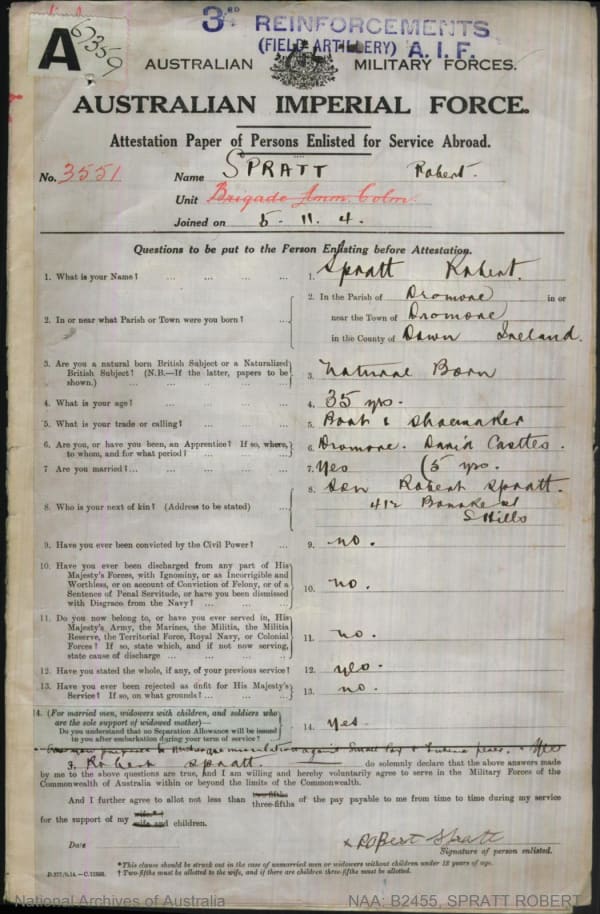 A 67359
3RD REINFORCEMENTS
(FIELD ARTILLERY) A.I.F.
AUSTRALIAN MILITARY FORCES.
AUSTRALIAN IMPERIAL FORCE.
Attestation Paper of Persons Enlisted for Service Abroad.
No. 3551 Name SPRATT Robert.
Unit Brigade Amm. Colm.
Joined on 5. 11. 4.
Questions to be put to the Person Enlisting before Attestation.
1. What is your Name? ... ... ... ... 1. Spratt Robert.
2. In or near what Parish or Town were you born? ... 2. In the Parish of Dromore in or
near the Town of Dromore
in the County of Down Ireland.
3. Are you a natural born British Subject or a Naturalized
British Subject? (N.B.—If the latter, papers to be
shown.) ... ... ... ... 3. Natural Born
4. What is your age? ... ... ... ... 4. 35 yrs.
5. What is your trade or calling? ... ... ... 5. Boot & Shoemaker
6. Are you, or have you been, an Apprentice? If so, where,
to whom, and for what period? ... ... ... 6. Dromore.
7. Are you married?... ... ... ... ... 7. Yes (5 yrs.
8. Who is your next of kin? (Address to be stated) ... 8. Son Robert Spratt.
412
S Hills
9. Have you ever been convicted by the Civil Power? ... 9. no.
10. Have you ever been discharged from any part of His
Majesty's Forces, with Ignominy, or as Incorrigible and
Worthless, or on account of Conviction of Felony, or of a
Sentence of Penal Servitude, or have you been dismissed
with Disgrace from the Navy? ... ... ... 10. no.
11. Do you now belong to, or have you ever served in, His
Majesty's Army, the Marines, the Militia, the Militia
Reserve, the Territorial Force, Royal Navy, or Colonial
Forces? If so, state which, and if not now serving,
state cause of discharge ... ... ... ... 11. no.
12. Have you stated the whole, if any, of your previous service? 12. yes.
13. Have you ever been rejected as unfit for His Majesty's
Service? If so, on what grounds? ... ... ... 13. no.
14. (For married men, widowers with children, and soldiers who
are the sole support of widowed mother)—
Do you understand that no Separation Allowance will be issued
in you after embarkation during your term of service? 14. yes
I, Robert Spratt. do solemnly declare that the above answers made
by me to the above questions are true, and I am willing and hereby voluntarily agree to serve in the Military Forces of the
Commonwealth of Australia within or beyond the limits of the Commonwealth.
And I further agree to allot not less than two-fifths
three-fifths of the pay payable to me from time to time during my service
for the support of my wife*†
wife and children.
Date x Robert Spratt
Signature of person enlisted.
*This clause should be struck out in the case of unmarried men or widowers without children under 18 years of age.
† Two-fifths must be allotted to the wife, and if there are children three-fifths must be allotted.
National Archives of Australia NAA: B2455, SPRATT ROBERT